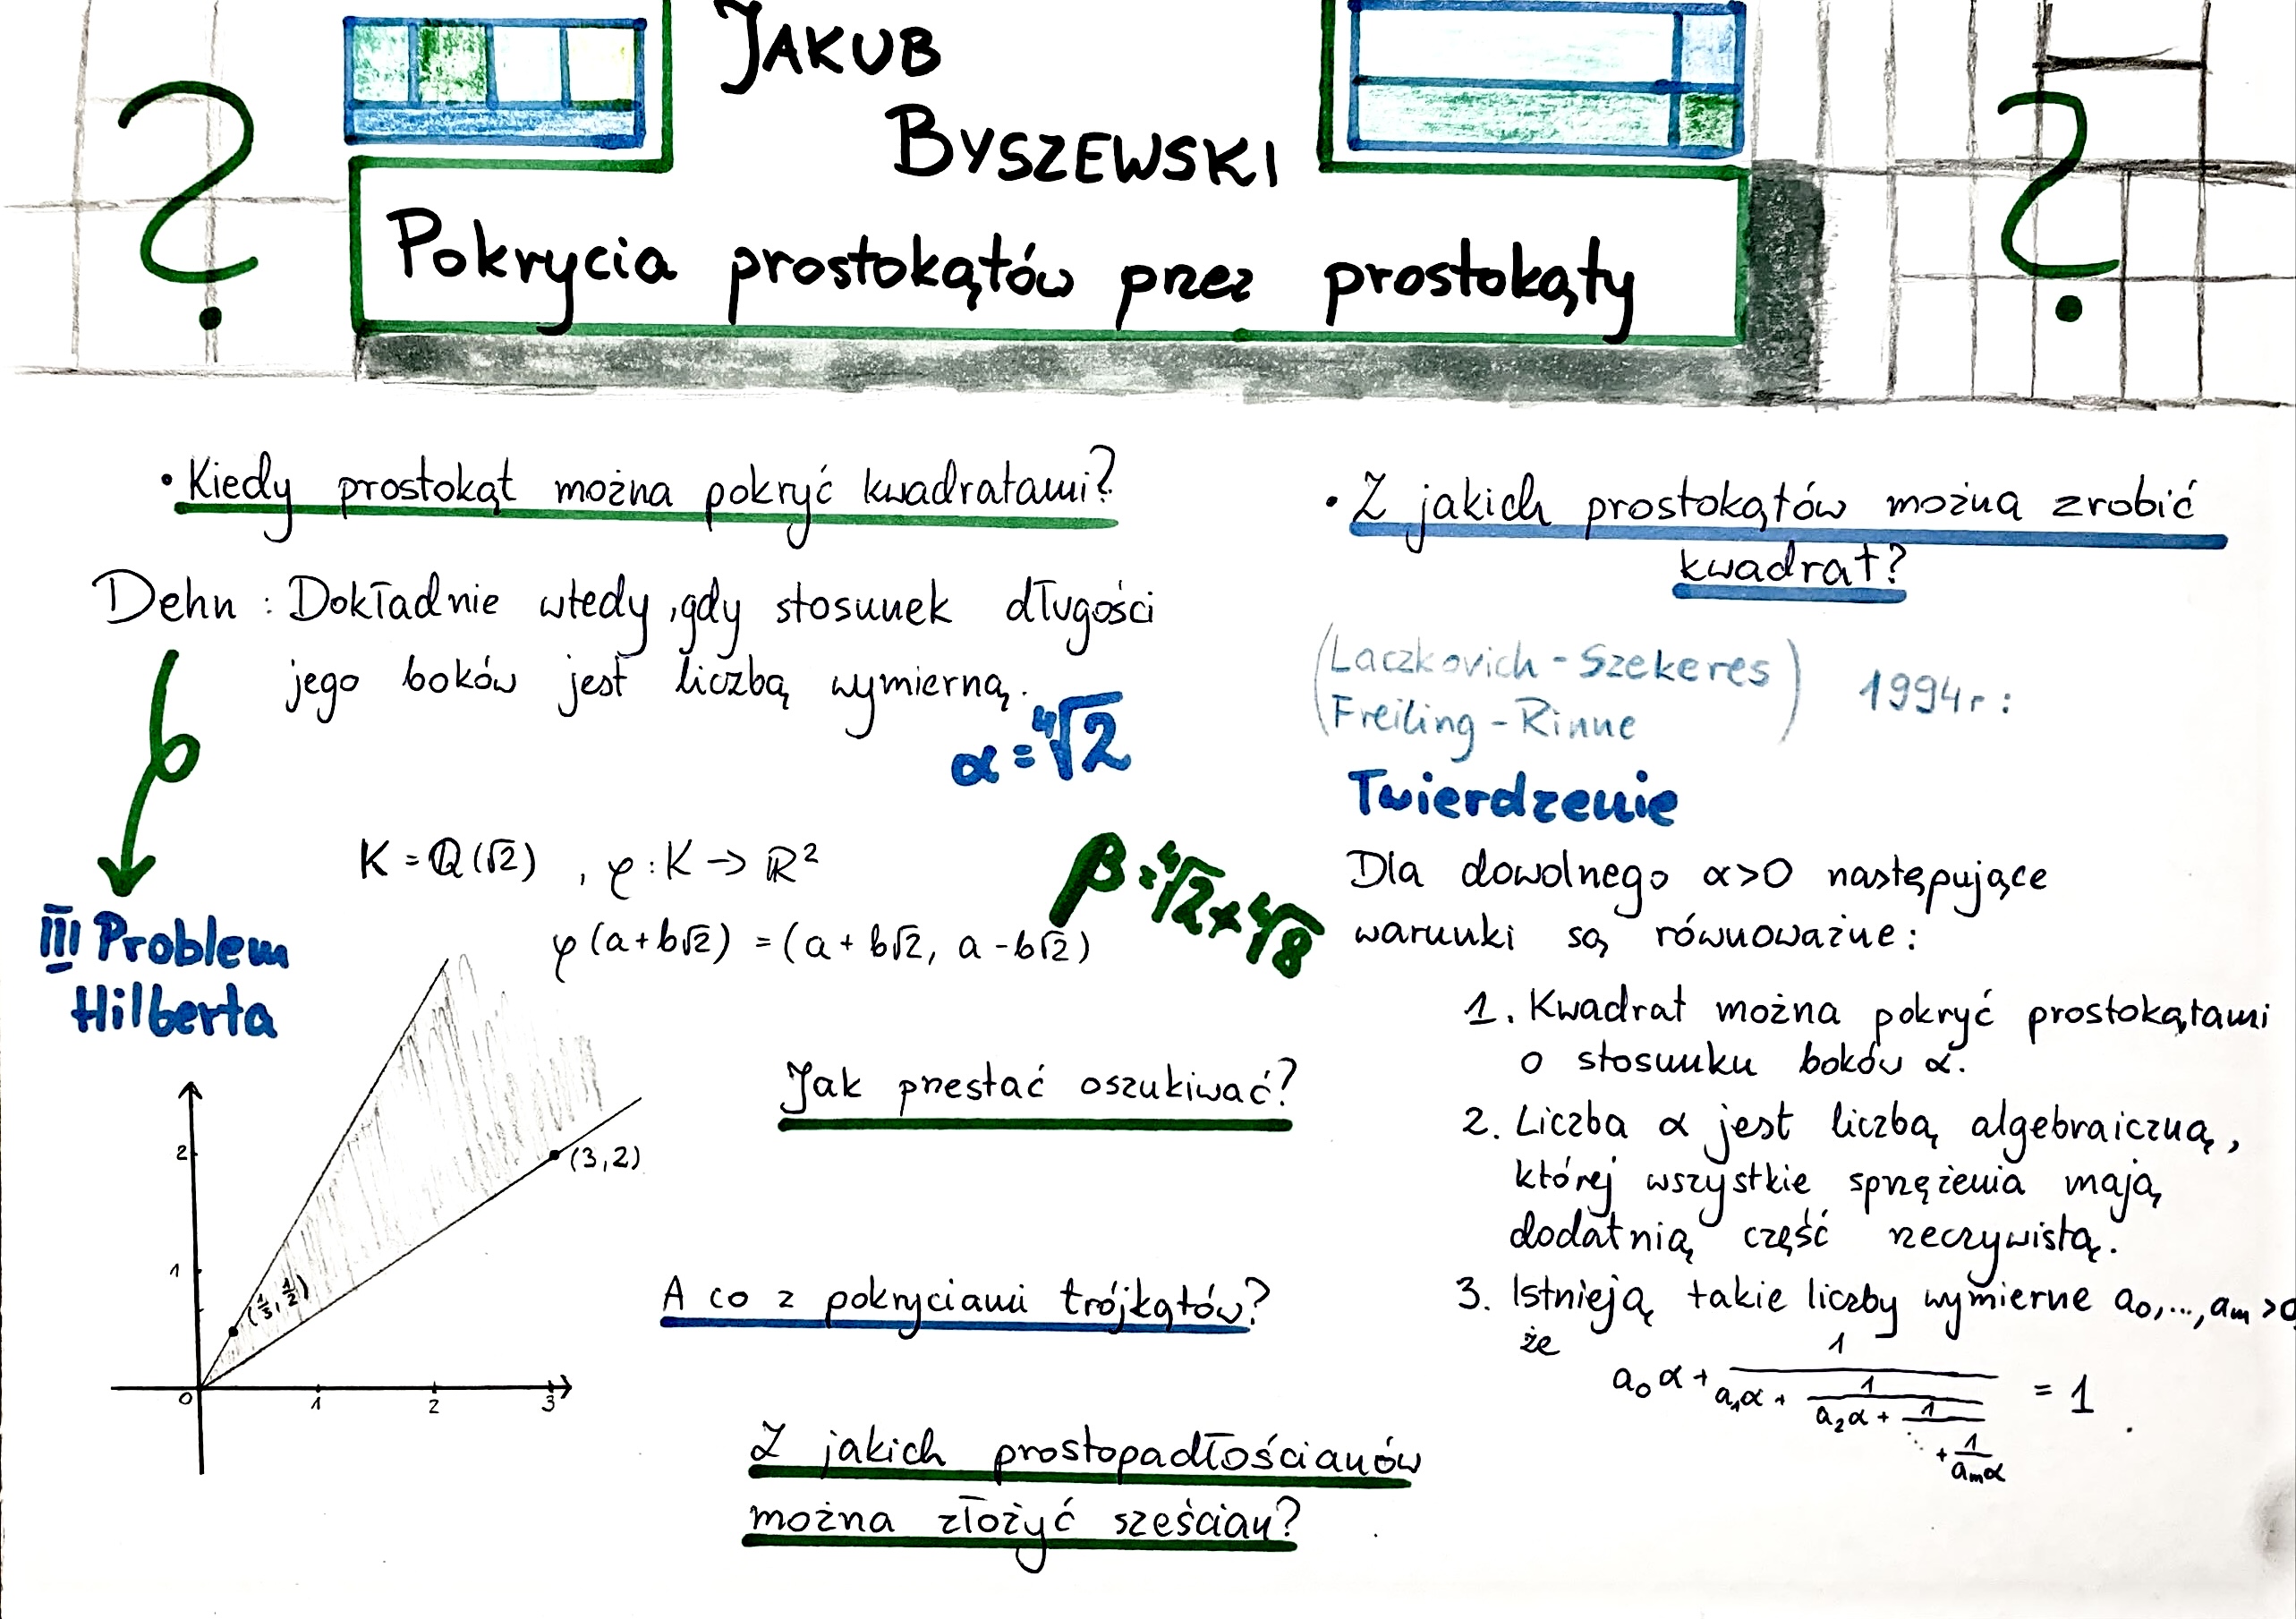 ?
JAKUB
BYSZEWSKI
Pokrycia prostokątów przez prostokąty
?
• Kiedy prostokąt można pokryć kwadratami?
Dehn : Dokładnie wtedy, gdy stosunek długości
jego boków jest liczbą wymierną.
α = ∜2
III Problem
Hilberta
K = ℚ(√2) , φ : K → ℝ²
φ(a+b√2) = (a + b√2, a - b√2)
β = ∜2 + ∜8
2
1
0
1
2
3
(1/3, 1/2)
(3,2)
Jak przestać oszukiwać?
A co z pokryciami trójkątów?
Z jakich prostopadłościanów
można złożyć sześcian?
• Z jakich prostokątów można zrobić
kwadrat?
(Laczkovich - Szekeres
Freiling - Rinne) 1994r :
Twierdzenie
Dla dowolnego α>0 następujące
warunki są równoważne :
1. Kwadrat można pokryć prostokątami
o stosunku boków α.
2. Liczba α jest liczbą algebraiczną,
której wszystkie sprzężenia mają
dodatnią część rzeczywistą.
3. Istnieją takie liczby wymierne a₀,...,aₘ >0,
że
a₀α + 1/(a₁α + 1/(a₂α + 1/(⋱ + 1/(aₘα)))) = 1 .